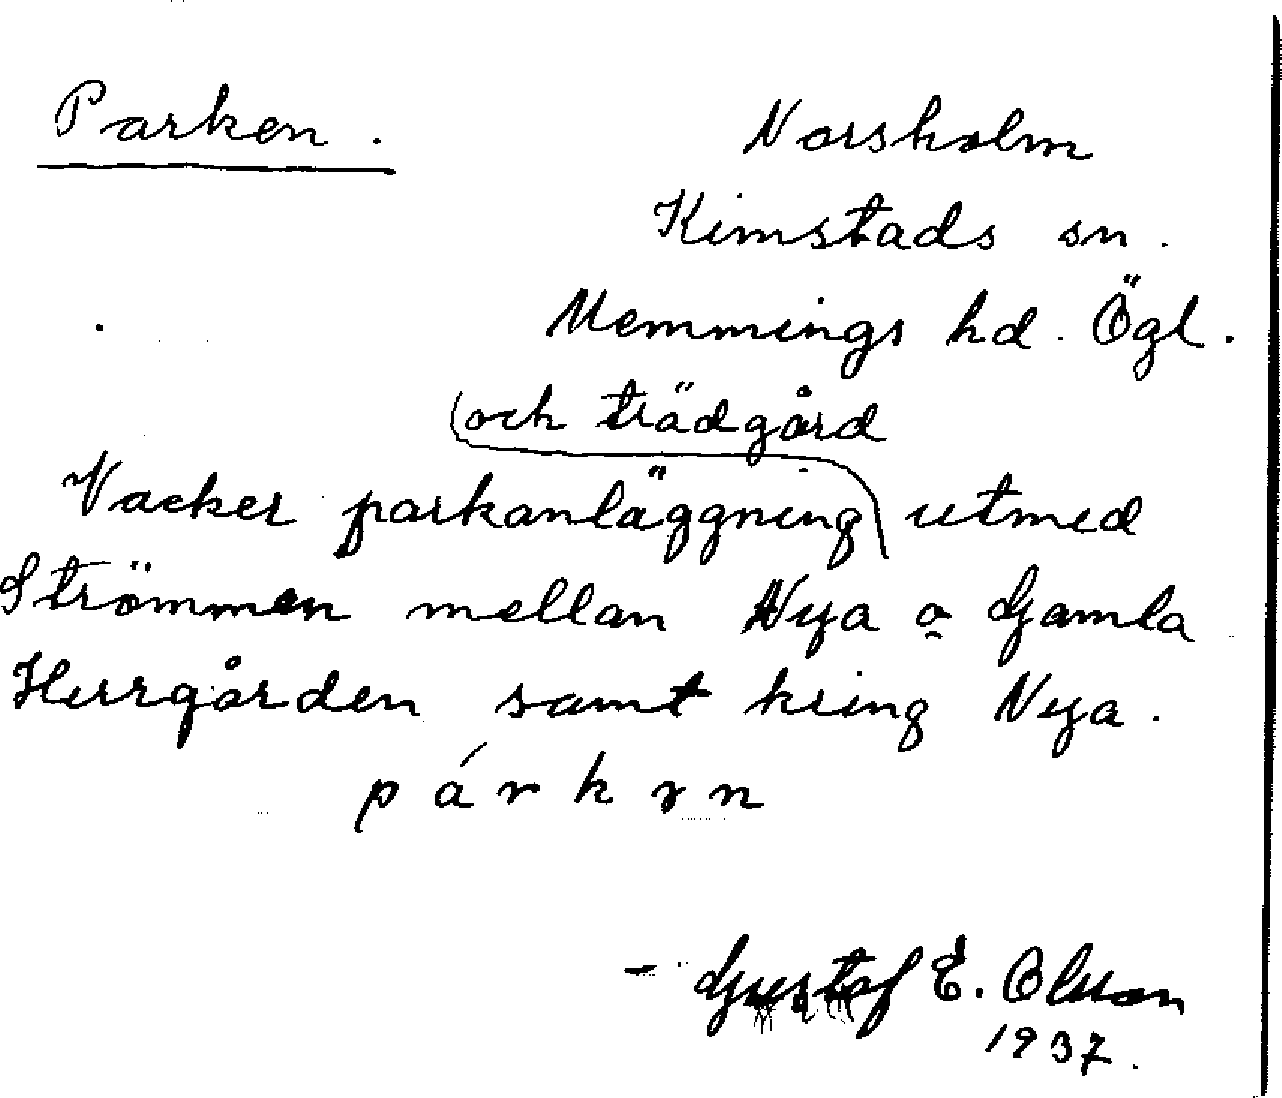 Parken.
Norsholm
Kimstads sn.
Memmings hd. Ögl.
och trädgård
Vacker parkanläggning utmed
Strömmen mellan Nya o Gamla
Herrgården samt kring Nya.
párkɤn
- Gustaf E. Olsson
1937.